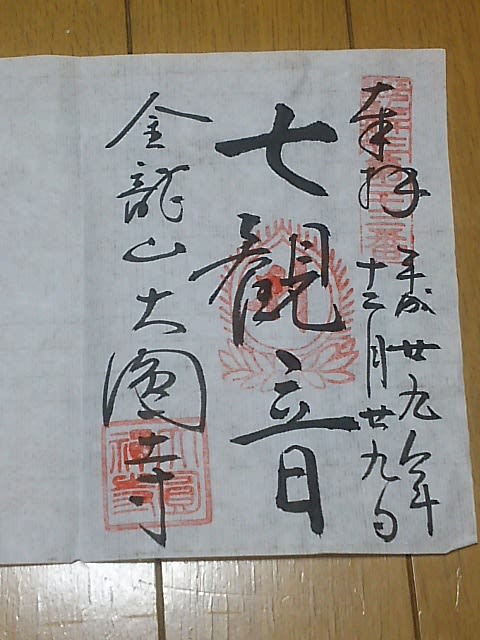 奉拝
平成廿九年
十二月廿九日
七観音
金龍山大圓寺